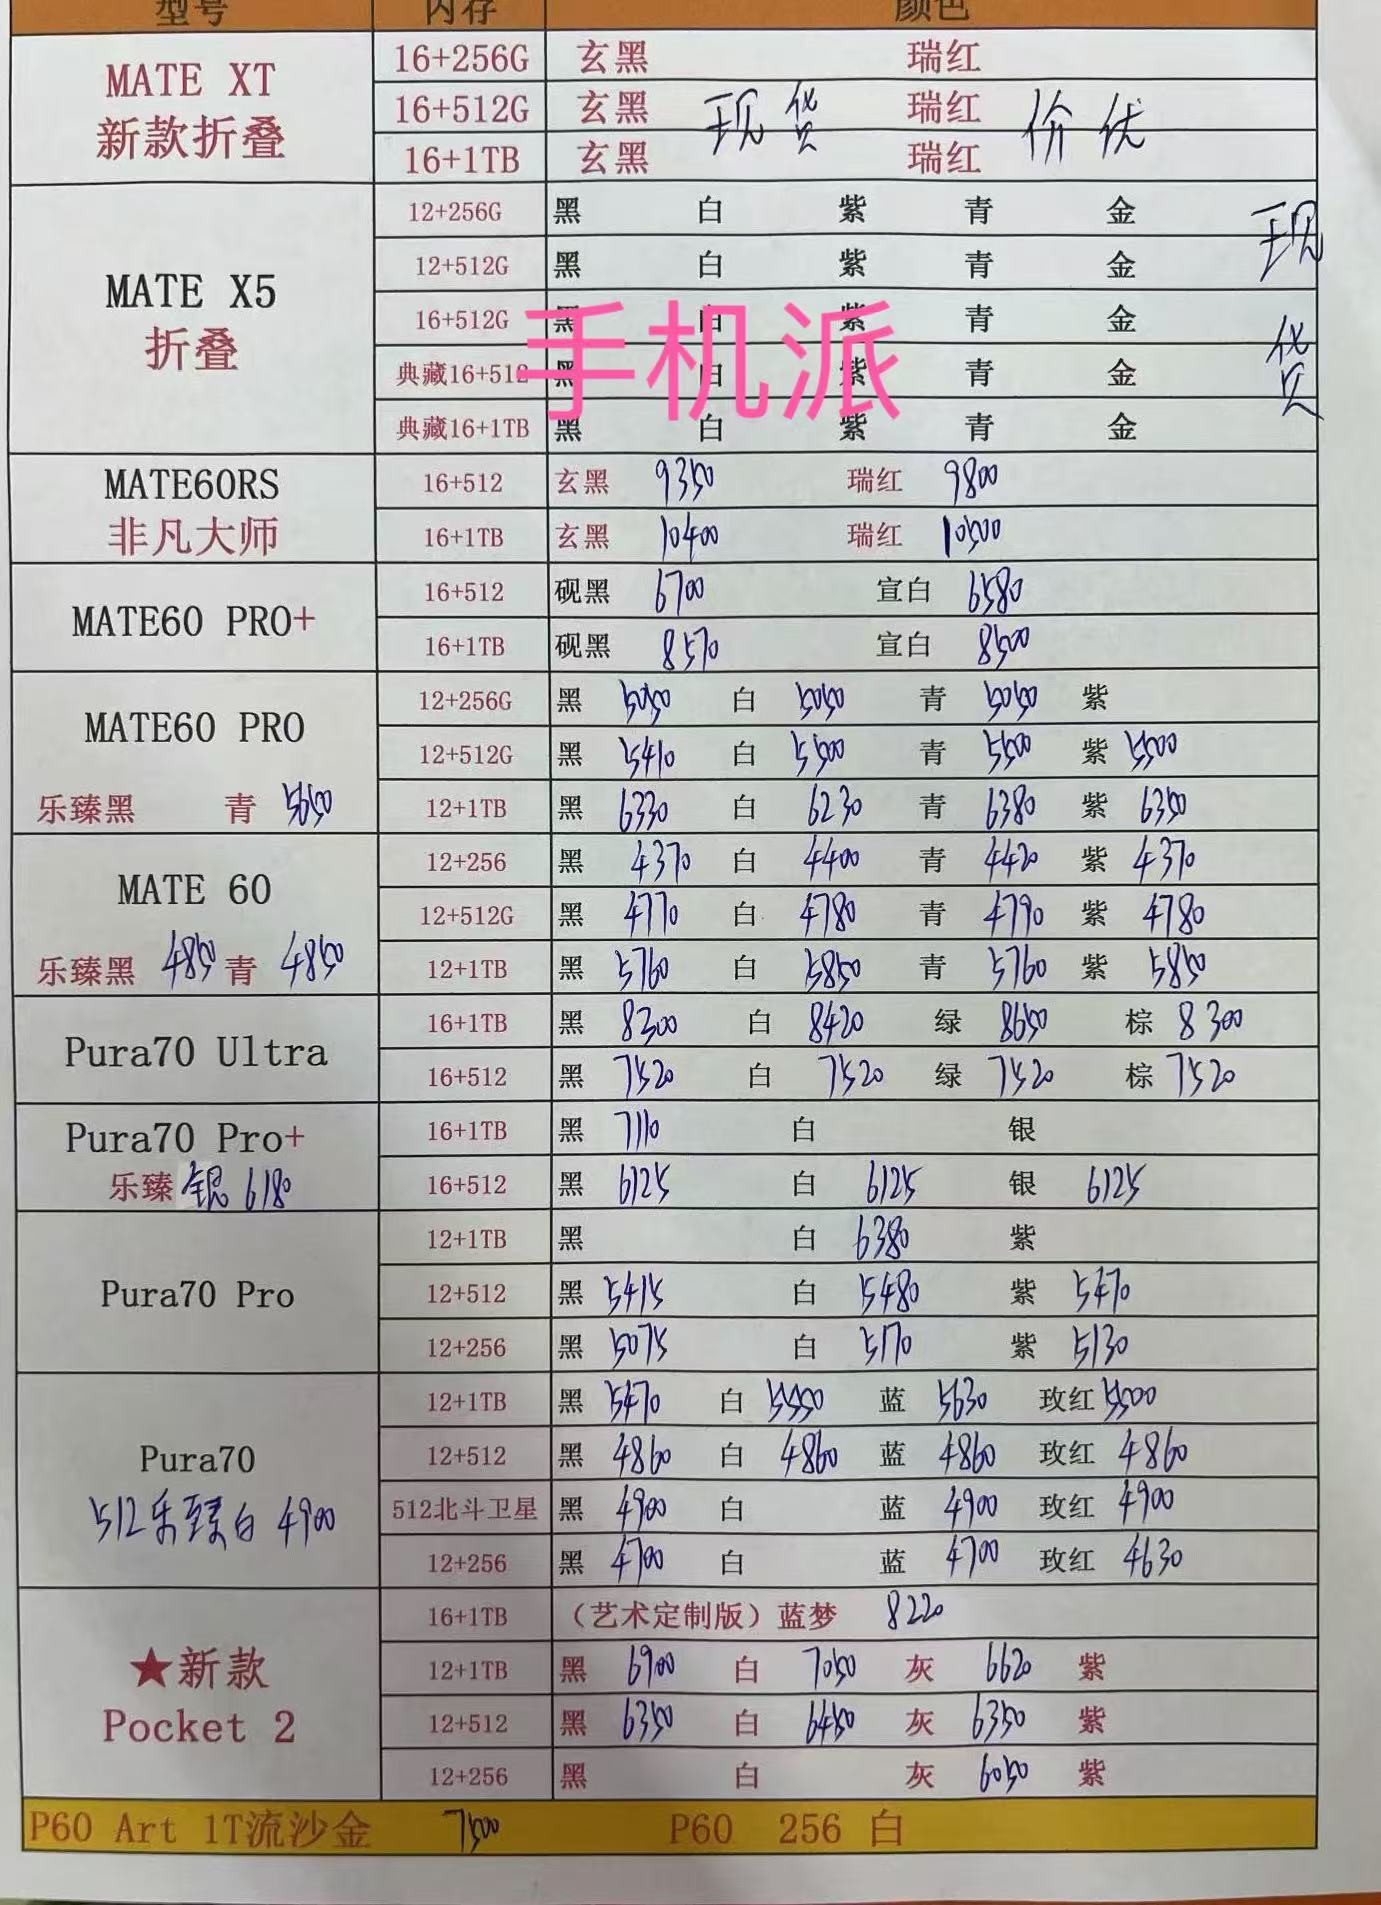 型号 内存 颜色
MATE XT 新款折叠
16+256G 玄黑 瑞红
16+512G 玄黑 现货 瑞红 价优
16+1TB 玄黑 瑞红
MATE X5 折叠 现货
12+256G 黑 白 紫 青 金
12+512G 黑 白 紫 青 金
16+512G 黑 白 紫 青 金
手机派
典藏16+512 黑 白 紫 青 金
典藏16+1TB 黑 白 紫 青 金
MATE60RS 非凡大师
16+512 玄黑 9350 瑞红 9800
16+1TB 玄黑 10400 瑞红 10500
MATE60 PRO+
16+512 砚黑 6700 宣白 6580
16+1TB 砚黑 8570 宣白 8500
MATE60 PRO
乐臻黑 青 5650
12+256G 黑 5050 白 5050 青 5050 紫
12+512G 黑 5410 白 5500 青 5500 紫 5500
12+1TB 黑 6330 白 6230 青 6380 紫 6350
MATE 60
乐臻黑 4850 青 4850
12+256 黑 4370 白 4400 青 4420 紫 4370
12+512G 黑 4770 白 4780 青 4790 紫 4780
12+1TB 黑 5760 白 5850 青 5760 紫 5850
Pura70 Ultra
16+1TB 黑 8300 白 8420 绿 8650 棕 8300
16+512 黑 7520 白 7520 绿 7520 棕 7520
Pura70 Pro+
乐臻银 6180
16+1TB 黑 7110 白 银
16+512 黑 6125 白 6125 银 6125
Pura70 Pro
12+1TB 黑 白 6380 紫
12+512 黑 5415 白 5480 紫 5470
12+256 黑 5075 白 5170 紫 5130
Pura70
512乐臻白 4900
12+1TB 黑 5470 白 5550 蓝 5630 玫红 5500
12+512 黑 4860 白 4860 蓝 4860 玫红 4860
512北斗卫星 黑 4900 白 蓝 4900 玫红 4900
12+256 黑 4700 白 蓝 4700 玫红 4630
★新款 Pocket 2
16+1TB （艺术定制版）蓝梦 8220
12+1TB 黑 6900 白 7050 灰 6620 紫
12+512 黑 6350 白 6450 灰 6350 紫
12+256 黑 白 灰 6050 紫
P60 Art 1T流沙金 7500 P60 256 白